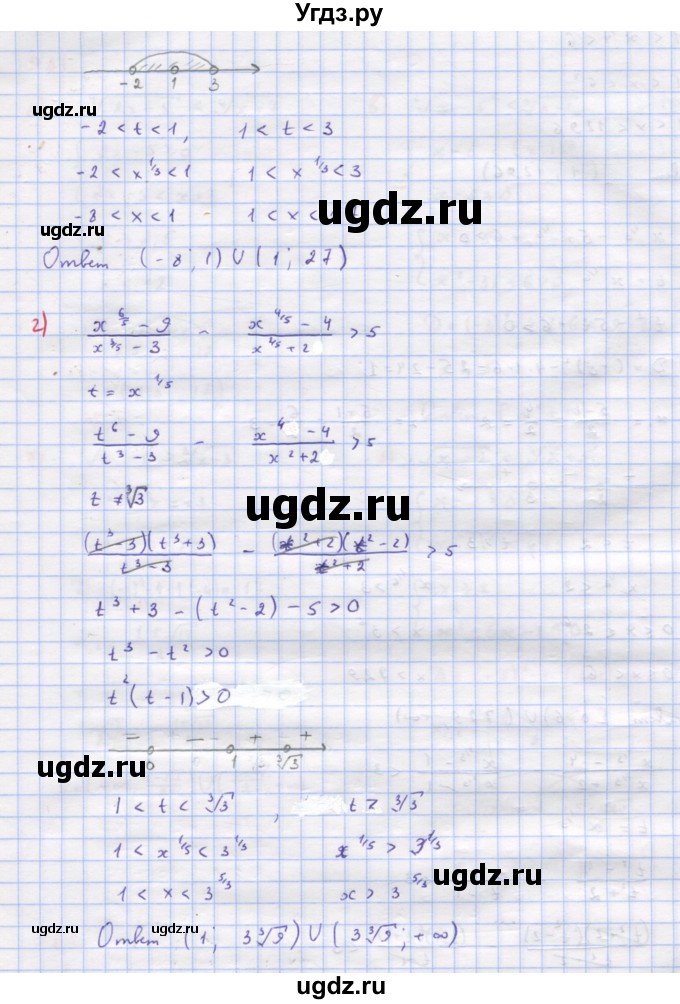 Угдз.ру
-2 1 3
-2 < t < 1, 1 < t < 3
-2 < x^1/3 < 1 1 < x^1/3 < 3
-8 < x < 1 1 < x <
Ответ (-8; 1) U (1; 27)
2) (x^6/5 - 9)/(x^3/5 - 3) - (x^4/5 - 4)/(x^4/5 + 2) > 5
t = x^1/5
(t^6 - 9)/(t^3 - 3) - (x^4 - 4)/(x^2 + 2) > 5
t ≠ ∛3
(t^3 - 3)(t^3 + 3)/(t^3 - 3) - (t^2 + 2)(t^2 - 2)/(t^2 + 2) > 5
t^3 + 3 - (t^2 - 2) - 5 > 0
t^3 - t^2 > 0
t^2 (t - 1) > 0
- - - + +
0 1 ∛3
1 < t < ∛3, t > ∛3
1 < x^1/5 < 3^1/3 x^1/5 > 3^1/3
1 < x < 3^5/3 x > 3^5/3
Ответ (1; 3∛9) U (3∛9; +∞)
ugdz.ru
ugdz.ru
ugdz.ru
ugdz.ru
ugdz.ru
ugdz.ru
ugdz.ru
ugdz.ru
ugdz.ru
ugdz.ru
ugdz.ru
ugdz.ru
ugdz.ru
ugdz.ru